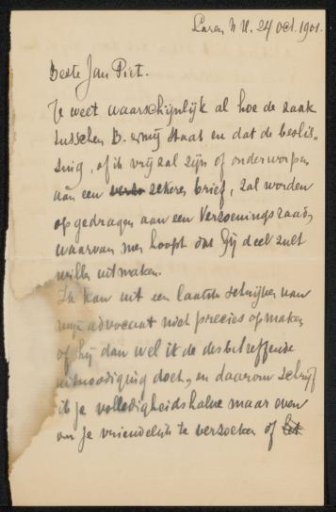 Laren N.H. 24 Oct. 1901.
Beste Jan Piet.
Je weet waarschijnlijk al hoe de zaak
tusschen B. en mij staat en dat de beslis-
sing, of ik vrij zal zijn of onderworpen
aan een zekere brief, zal worden
opgedragen aan een Verzoeningsraad,
waarvan men hoopt dat Gij deel zult
willen uitmaken.
Ik kan uit een laatste schrijven van
mijn advocaat niet precies opmaken
of hij dan wel ik de desbetreffende
uitnoodiging doet, en daarom schrijf
ik je volledigheidshalve maar even
om je vriendelijk te verzoeken of